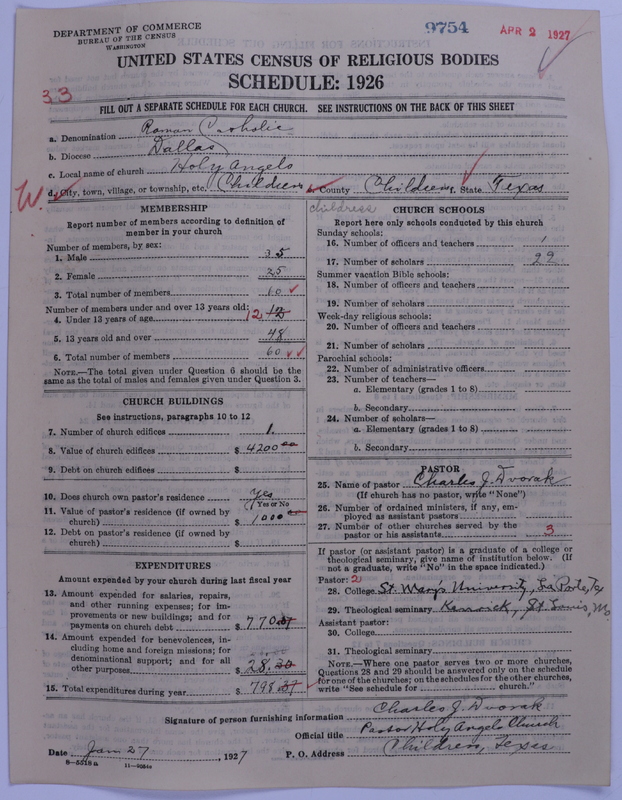 DEPARTMENT OF COMMERCE
BUREAU OF THE CENSUS
WASHINGTON
9754
APR 2 1927
UNITED STATES CENSUS OF RELIGIOUS BODIES
SCHEDULE: 1926
33
FILL OUT A SEPARATE SCHEDULE FOR EACH CHURCH. SEE INSTRUCTIONS ON THE BACK OF THIS SHEET
a. Denomination Roman Catholic
b. Diocese Dallas
c. Local name of church Holy Angels
W. d. City, town, village, or township, etc. Childress e. County Childress f. State Texas
childress
MEMBERSHIP
Report number of members according to definition of member in your church
Number of members, by sex:
1. Male 35
2. Female 25
3. Total number of members 60
Number of members under and over 13 years old:
4. Under 13 years of age 12 12
5. 13 years old and over 48
6. Total number of members 60
NOTE.—The total given under Question 6 should be
same as the total of males and females given under Question 3.
CHURCH BUILDINGS
See instructions, paragraphs 10 to 12
7. Number of church edifices 1
8. Value of church edifices $ 4200 00
9. Debt on church edifices $
10. Does church own pastor's residence Yes
(Yes or No)
11. Value of pastor's residence (if owned by
church) $ 1000
12. Debt on pastor's residence (if owned by
church) $
EXPENDITURES
Amount expended by your church during last fiscal year
13. Amount expended for salaries, repairs,
and other running expenses; for im-
provements or new buildings; and for
payments on church debt $ 770.37
14. Amount expended for benevolences, in-
cluding home and foreign missions; for
denominational support; and for all
other purposes $ 28.20
15. Total expenditures during year $ 798.37
CHURCH SCHOOLS
Report here only schools conducted by this church
Sunday schools:
16. Number of officers and teachers 1
17. Number of scholars 22
Summer vacation Bible schools:
18. Number of officers and teachers
19. Number of scholars
Week-day religious schools:
20. Number of officers and teachers
21. Number of scholars
Parochial schools:
22. Number of administrative officers
23. Number of teachers—
a. Elementary (grades 1 to 8)
b. Secondary
24. Number of scholars—
a. Elementary (grades 1 to 8)
b. Secondary
PASTOR
25. Name of pastor Charles J. Dvorak
(If church has no pastor, write "None")
26. Number of ordained ministers, if any, em-
ployed as assistant pastors
27. Number of other churches served by the
pastor or his assistants 3
If pastor (or assistant pastor) is a graduate of a college or
theological seminary, give name of institution below. (If
not a graduate, write "No" in the space indicated.)
Pastor: 2
28. College St. Mary's University, La Porte, Tex
29. Theological seminary Kenrick, St. Louis, Mo.
Assistant pastor:
30. College
31. Theological seminary
NOTE.—Where one pastor serves two or more churches,
Questions 28 and 29 should be answered only on the schedule
for one of the churches; on the schedules for the other churches,
write "See schedule for church."
Signature of person furnishing information Charles J. Dvorak
Official title Pastor Holy Angels Church
Date Jan 27, 1927 P. O. Address Childress, Texas
8—5518a 11—9284a